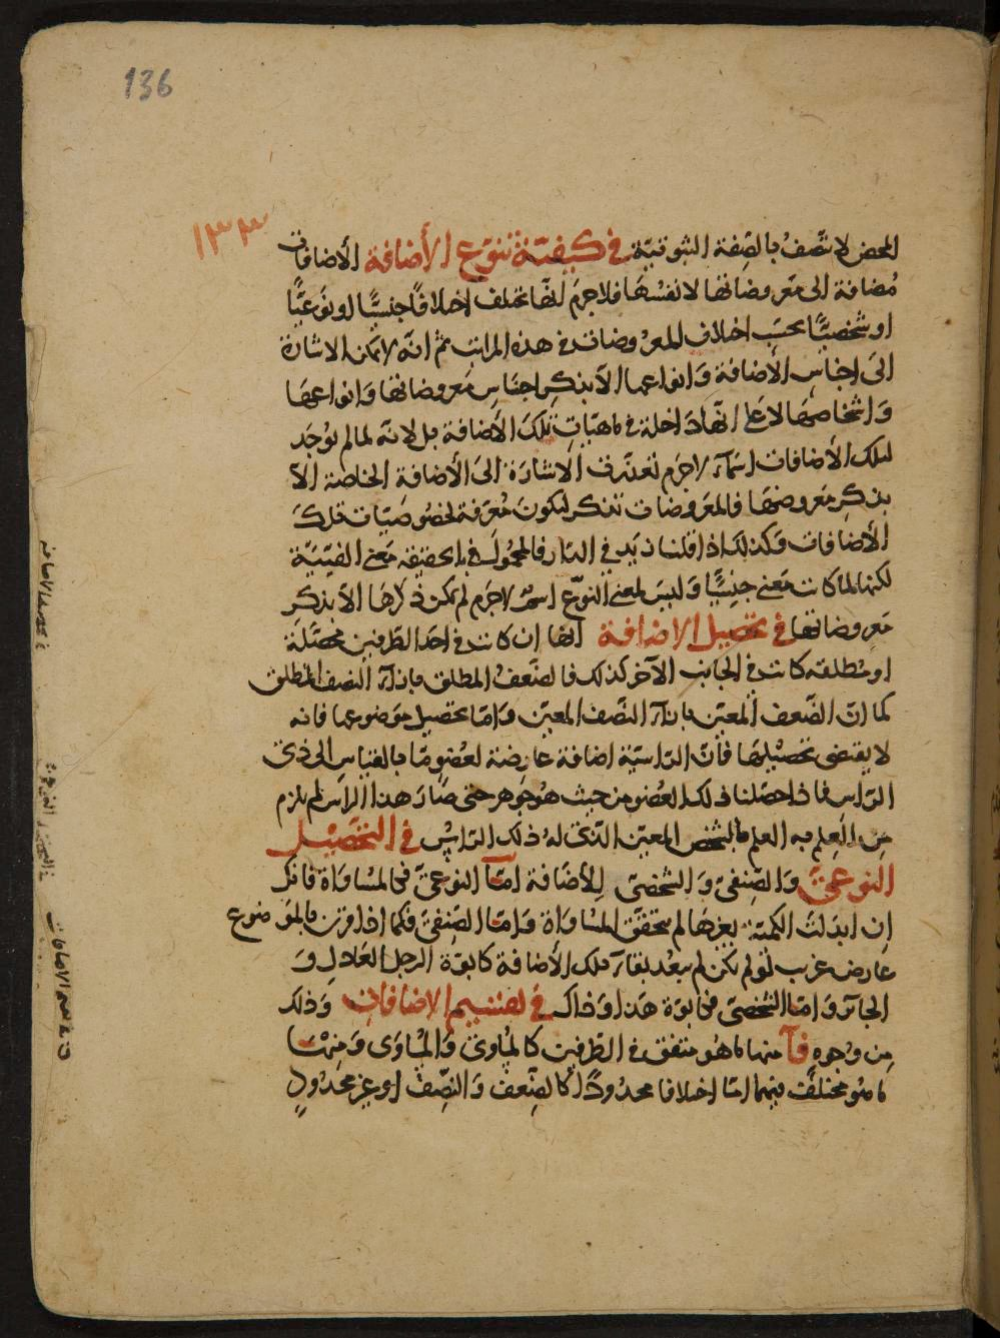 136
١٣٣
المحض لا تتصف بالصفة الثبوتية في كيفية تنوع الأضافة الأضافات
مضافة الى معروضاتها لا نفسها فلا جرم انها تختلف اختلافًا جنسيًّا او نوعيًّا
او شخصيًّا بحسب اختلاف المعروضات في هذه المراتب ثم انه لا يمكن الاشارة
الى اجناس الأضافة وانواعها الا بذكر اجناس معروضاتها وانواعها
واشخاصها لا على انها داخلة في ماهيات تلك الأضافة بل لانه لما لم يوجد
لتلك الأضافات اسماء لا جرم تعذرت الاشارة الى الأضافة الخاصة الا
بذكر معروضها فالمعروضات تذكر لتكون معرفة لخصوصيات تلك
الأضافات وكذلك اذا قلنا زيد في الدار فالمحمول في الحقيقة معنى الفيئية
لكنها لما كانت معنى جنسيًّا وليس لمعنى النوع اسم لا جرم لم يمكن ذكرها الا بذكر
معروضاتها في تحصيل الاضافة انها ان كانت في احد الطرفين محصلة
او مطلقة كانت في الجانب الآخر كذلك فالضعف المطلق بازاء النصف المطلق
كما ان الضعف المعين بازاء النصف المعين واما تحصيل موضوعها فانه
لا يقتضى تحصيلها فان الراسية اضافة عارضة لعضو ما بالقياس الى ذى
الراس فاذا حصلنا ذلك العضو من حيث هو جوهر حتى صار هذا الراس لم يلزم
من العلم به العلم بالشخص المعين الذى له ذلك الراس في التحصيل
النوعى والصنفى والشخصى للأضافة اما النوعى فى المساواة فانك
ان ابدلت الكمية بغيرها لم تتحقق المساواة واما الصنفى فكما اذا قرن بالموضوع
عارض غريب لو لم يكن لم يبعد بقاء تلك الأضافة كابوة الرجل العادل و
الجائر واما الشخصى فابوة هذا وذاك في تقسيم الاضافات وذلك
من وجوه فآ منها ما هو متفق في الطرفين كالمساوى والمساوى ومنها
ما هو مختلف فيهما اما اختلافا محدودًا كالضعف والنصف او غير محدود